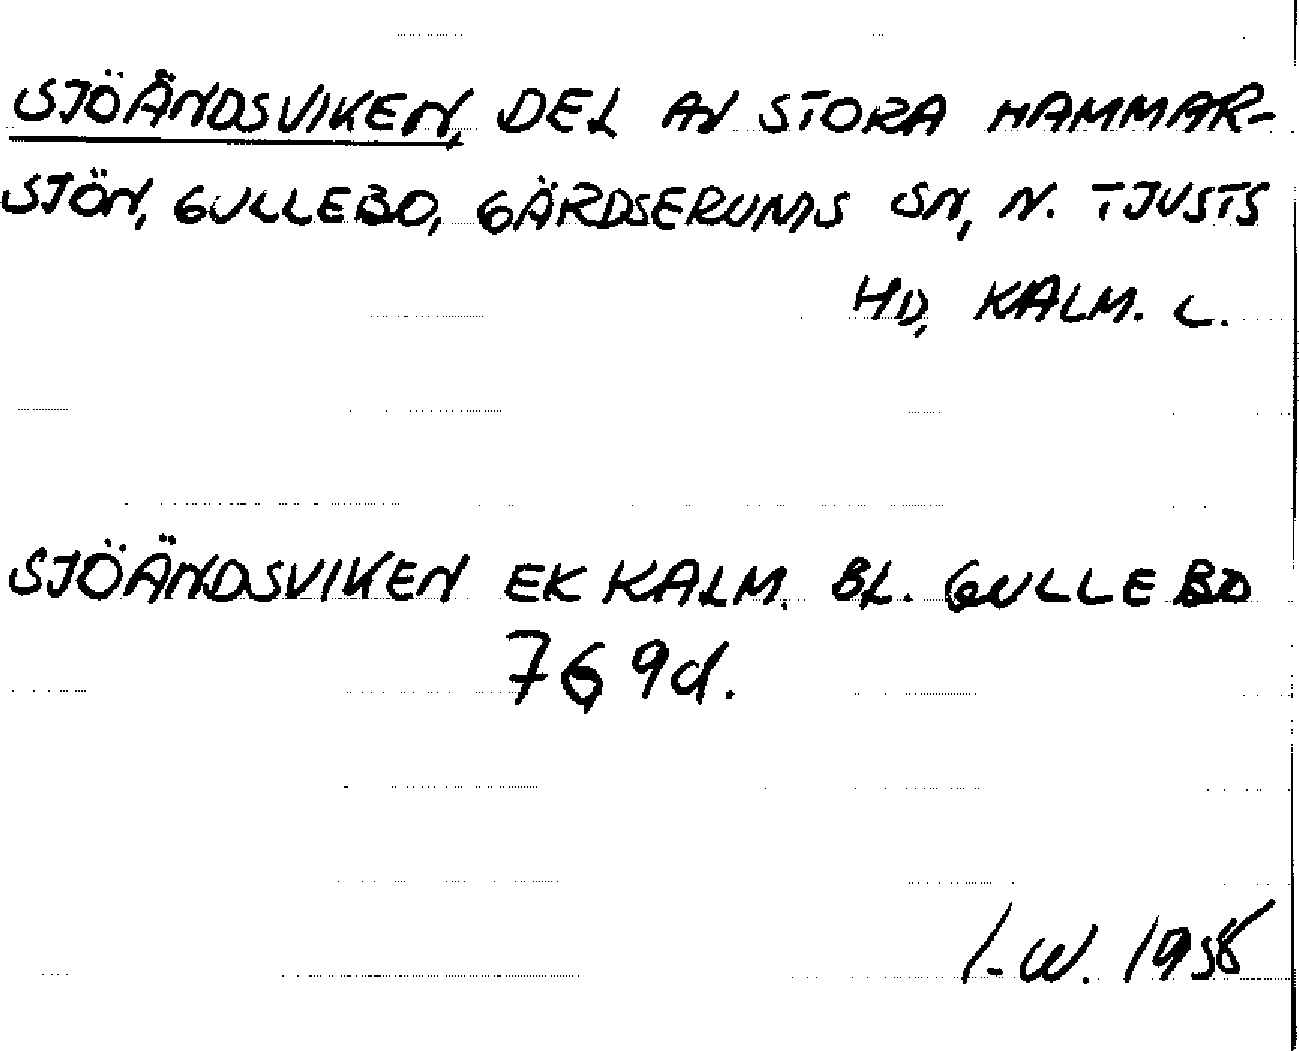 SJÖÄNDSVIKEN, DEL AV STORA HAMMAR-
SJÖN, GULLEBO, GÄRDSERUMS SN, N. TJUSTS
HD, KALM. L.
SJÖÄNDSVIKEN EK KALM. BL. GULLEBO
769d.
I-W. 1958